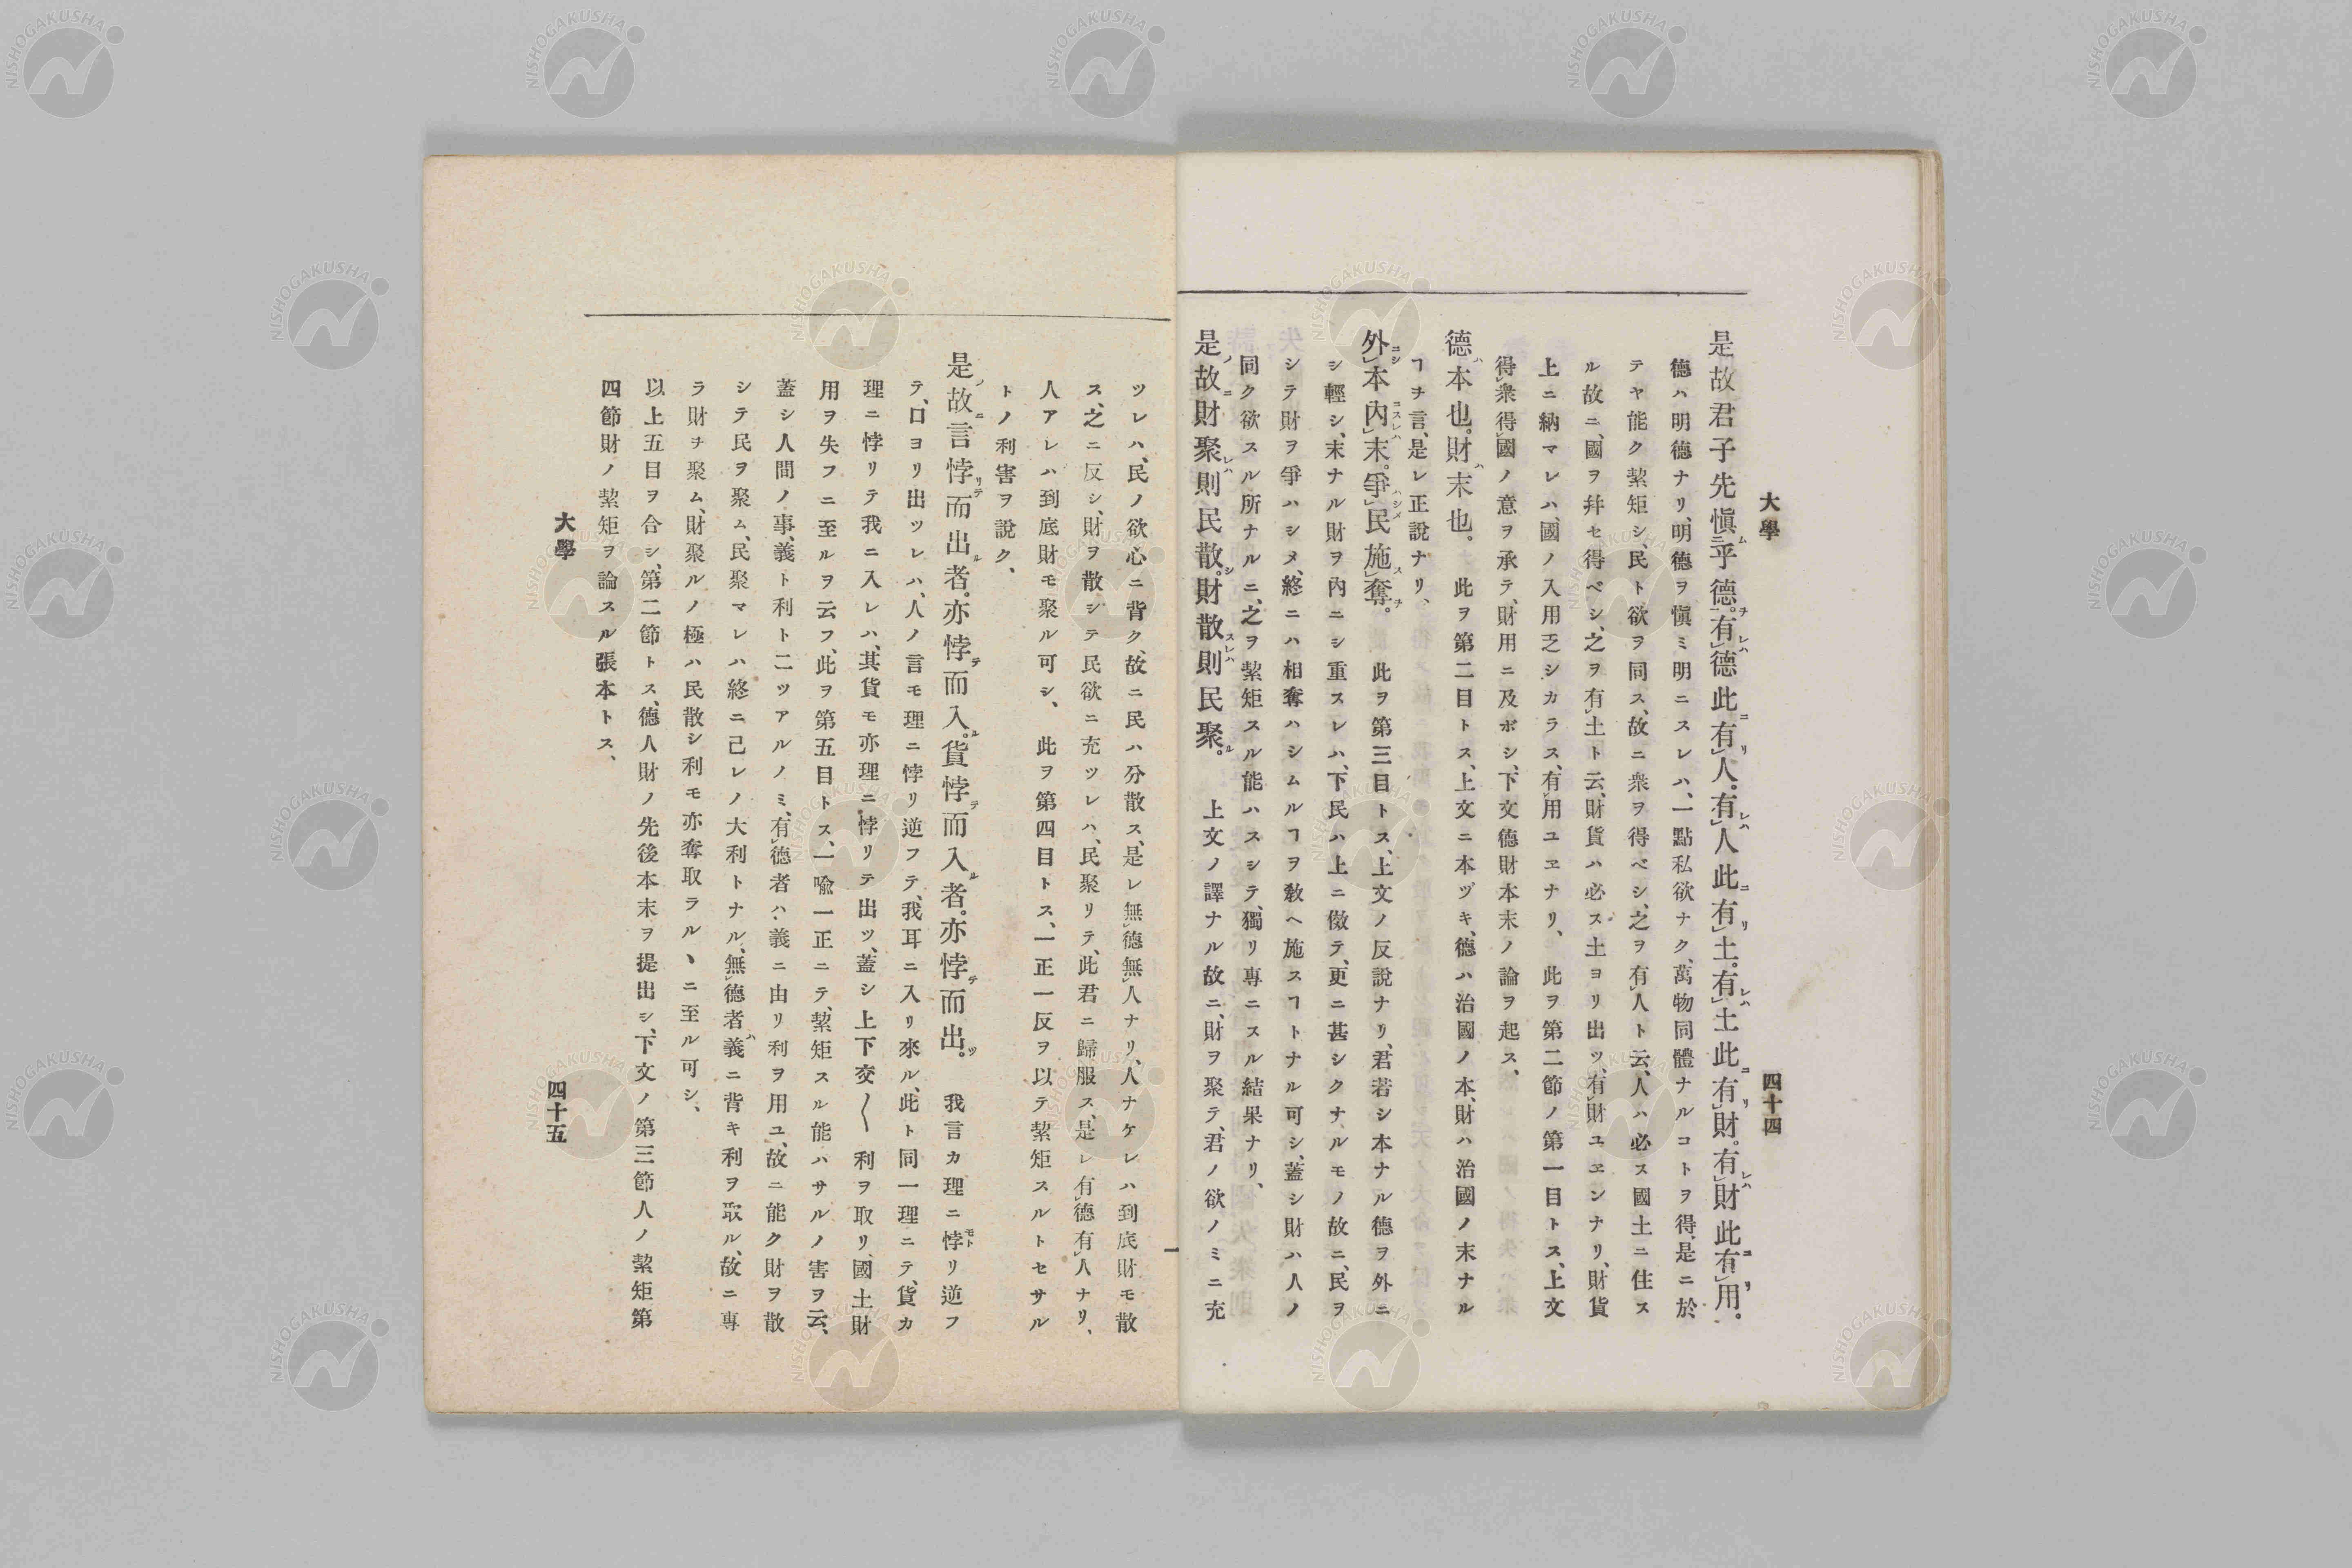 大學
四十四
是故君子先愼乎德。有德此有人。有人此有土。有土此有財。有財此有用。
德ハ明德ナリ、明德ヲ愼ミ明ニスレハ、一點私欲ナク、萬物同體ナルコトヲ得、是ニ於
テヤ能ク絜矩シ、民ト欲ヲ同ス、故ニ衆ヲ得ベシ、之ヲ有人ト云、人ハ必ス國土ニ住ス
ル故ニ、國ヲ幷セ得ベシ、之ヲ有土ト云、財貨ハ必ス土ヨリ出ツ、有財ユヱンナリ、財貨
上ニ納マレハ、國ノ入用乏シカラス、有用ユヱナリ、 此ヲ第二節ノ第一目トス、上文
得衆得國ノ意ヲ承テ、財用ニ及ボシ、下文德財本末ノ論ヲ起ス、
德ハ本也。財ハ末也。 此ヲ第二目トス、上文ニ本ヅキ、德ハ治國ノ本、財ハ治國ノ末ナル
ヿヲ言、是レ正說ナリ、
外本內末。爭民施奪。 此ヲ第三目トス、上文ノ反說ナリ、君若シ本ナル德ヲ外ニ
シ輕シ、末ナル財ヲ內ニシ重スレハ、下民ハ上ニ傚テ、更ニ甚シクナルモノ故ニ、民ヲ
シテ財ヲ爭ハシメ、終ニハ相奪ハシムルヿヲ敎ヘ施スヿトナル可シ、蓋シ財ハ人ノ
同ク欲スル所ナルニ、之ヲ絜矩スル能ハスシテ、獨リ專ニスル結果ナリ、
是故財聚則民散。財散則民聚。 上文ノ譯ナル故ニ、財ヲ聚テ、君ノ欲ノミニ充
ツレハ、民ノ欲心ニ背ク、故ニ民ハ分散ス、是レ無德無人ナリ、人ナケレハ到底財モ散
ス、之ニ反シ、財ヲ散シテ民欲ニ充ツレハ、民聚リテ、此君ニ歸服ス、是レ有德有人ナリ、
人アレハ到底財モ聚ル可シ、 此ヲ第四目トス、一正一反ヲ以テ絜矩スルトセサル
トノ利害ヲ說ク、
是故言悖而出者。亦悖而入。貨悖而入者。亦悖而出。 我言カ理ニ悖リ逆フ
テ、口ヨリ出ツレハ、人ノ言モ理ニ悖リ逆フテ、我耳ニ入リ來ル、此ト同一理ニテ、貨カ
理ニ悖リテ我ニ入レハ、其貨モ亦理ニ悖リテ出ツ、蓋シ上下交〱利ヲ取リ、國土財
用ヲ失フニ至ルヲ云フ、此ヲ第五目トス、一喩一正ニテ、絜矩スル能ハサルノ害ヲ云、
蓋シ人間ノ事、義ト利ト二ツアルノミ、有德者ハ、義ニ由リ利ヲ用ユ、故ニ能ク財ヲ散
シテ民ヲ聚ム、民聚マレハ終ニ己レノ大利トナル、無德者ハ義ニ背キ利ヲ取ル、故ニ專
ラ財ヲ聚ム、財聚ルノ極ハ民散シ利モ亦奪取ラルヽニ至ル可シ、
以上五目ヲ合シ、第二節トス、德人財ノ先後本末ヲ提出シ、下文ノ第三節人ノ絜矩第
四節財ノ絜矩ヲ論スル張本トス、
大學
四十五